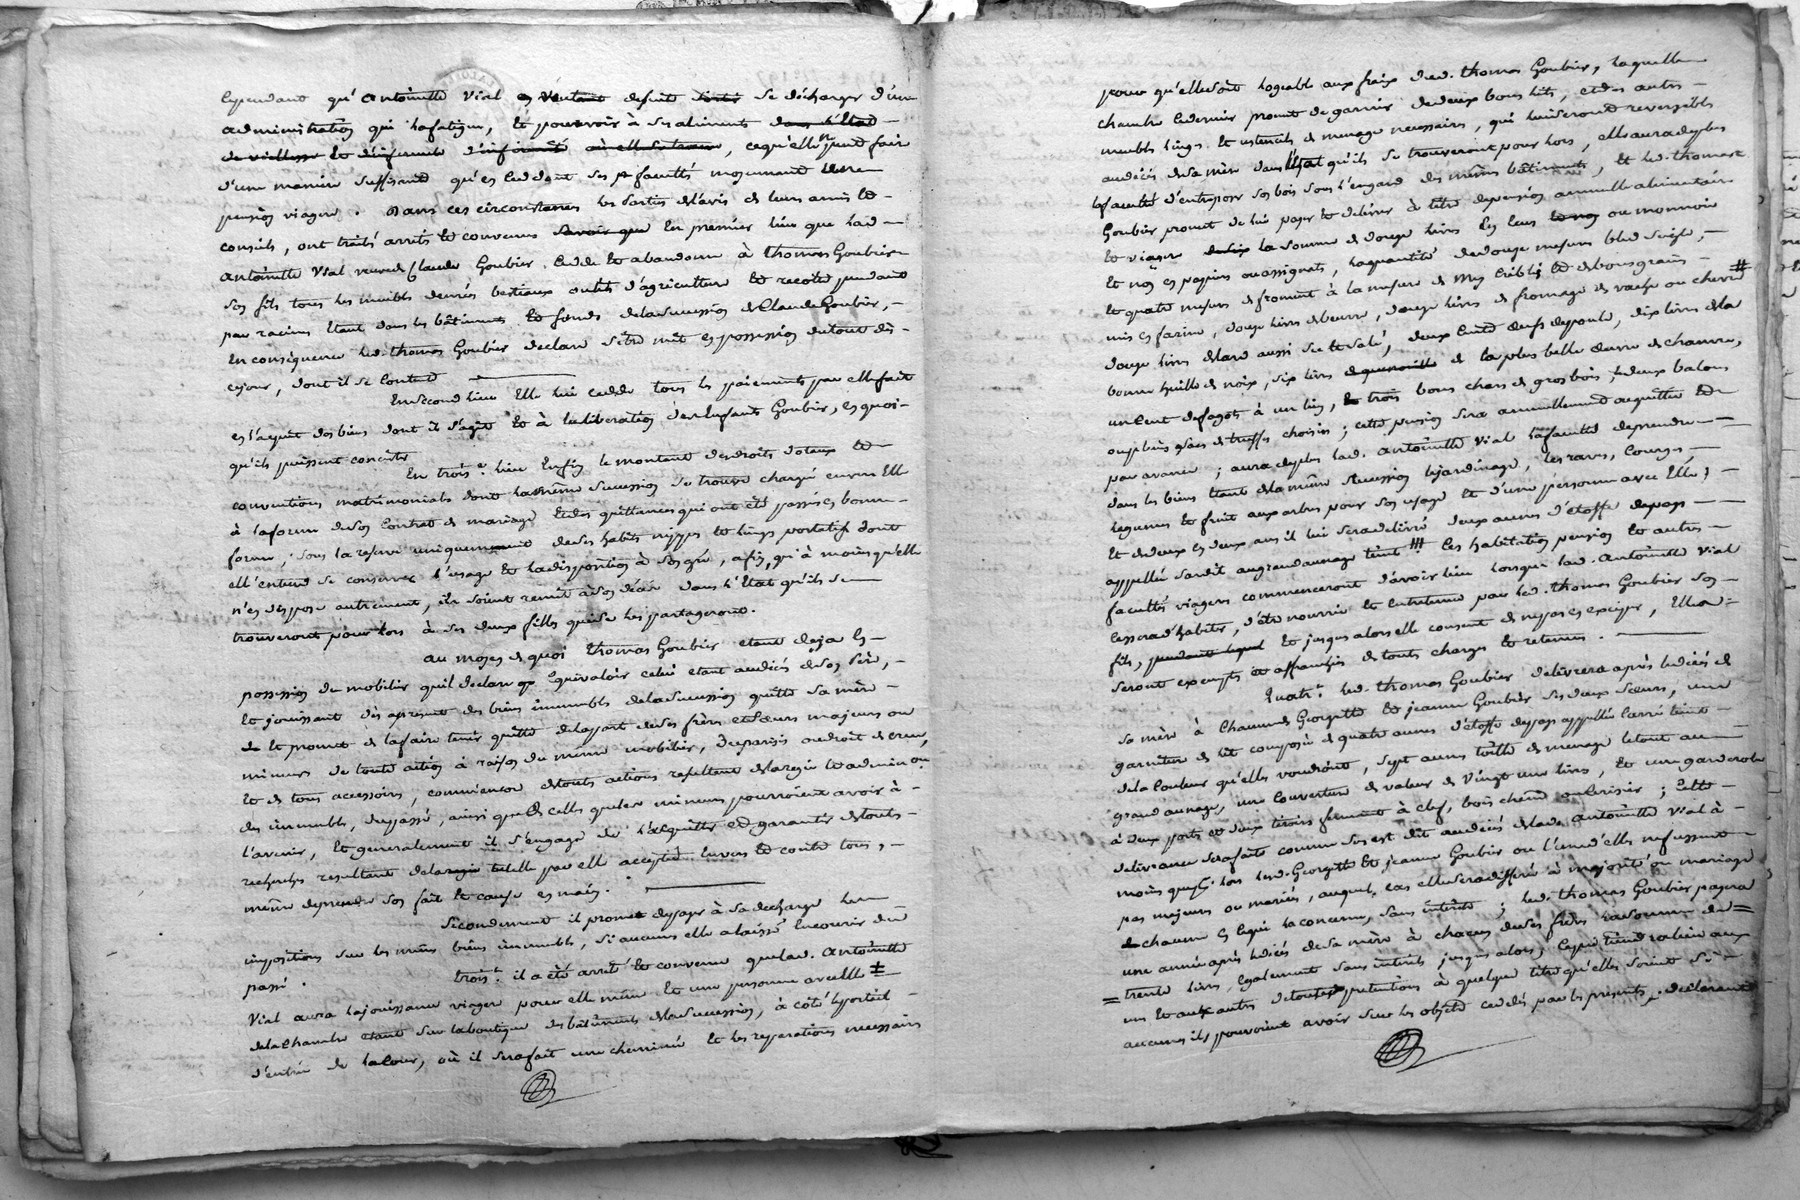 Cependant qu'antoinette vial desirant se décharger d'une
administration qui la fatigue, et pourvoir à ses aliments dans l'état
de viellesse et d'infirmité où elle se trouve, ce qu'elle ne peut fair
d'une maniere suffisante qu'en cedant ses facultés moyennant une
pension viagere. Dans ces circonstances les parties de l'avis de leurs amis et
conseils, ont traité arreté et convenu savoir que En premier lieu que lad.
antoinette vial veuve Claude Goubier cedde et abandonne à thomas Goubier
son fils tous les meubles denrées bestiaux outils d'agriculture et recolte pendante
par racines étant dans les bâtiments et fonds de la succession de Claude Goubier,
En consequence led. thomas Goubier declare s'être mit en possession du tout dès
ce jour, dont il se contente
En second lieu Elle lui cedde tous les paiements par elle fait
en l'acquit des biens dont il s'agit et à la liberation des Enfants Goubier, en quoi
qu'ils puissent consister
En trois.e lieu Enfin le montant des droits dotaux et
conventions matrimoniales dont la même succession se trouve chargé envers Elle
à la forme de son Contrat de mariage et des quittances qui ont été passées en bonne
forme; sous la reserve uniquement de ses habits nippes et linges portatifs dont
elle entend se conserver l'usage et la disposition à son gré, afin qu'à moins qu'elle
n'en dispose autrement, ils soient remit à son décès dans l'Etat qu'ils se
trouveront pour lors à ses deux filles qui se les partageront.
au moyen de quoi thomas Goubier etant deja en
possession du mobilier qu'il declare equivaloir celui etant au décès de son père,
et jouissant dès apresent des biens immeubles de la succession quitte sa mère
et promet de la faire tenir quitte de la part de ses frères et sœurs majeurs ou
mineurs de toute action à raison du même mobilier,
et de tous accessoires, comme encore de touts actions resultant de la regie et admin.on
des immeubles, du passé, ainsi que de celles que les mineurs pourroient avoir à
l'avenir, Et generalement il s'engage de l'acquitter et garantir de touts
recherches resultant de la regie par elle acceptée envers et contre tous,
même de prendre son fait et cause en main.
Secondement il promet de payer à sa decharge les
impositions sur les mêmes biens immeubles, si aucunes elle a laissé encourir du
passé.
trois.t il a été arreté et convenu que lad. antoinette
vial aura la jouissance viagere pour elle même et une personne avec elle ‡
de la chambre etant sur la boutique des bâtiments de la succession, à côté le portail
d'entrée de la cour, où il sera fait une cheminée et les reparations necessaires
pour qu'elle soit logeable aux fraix dud. thomas Goubier, laquelle
chambre ce dernier promet de garnir de deux bons lits, et des autres
meubles linges et ustencils de menage necessaires, qui lui seront reversibles
au décès de sa mère dans l'Etat qu'ils se trouveront pour lors, elle aura de plus
la faculté d'entreposer son bois sous l'engard des mêmes bâtiments, et led. thomas
Goubier promet de lui payer et delivrer à titre de pension annuelle alimentaire
et viagere la somme de douze livres En ecus ou monnoie
et non en papiers ou assignats, la quantité de douze mesures bled seigle,
et quatre mesures de froment à la mesure de criblés et de bons grains
mis en farine, douze livres de beurre, douze livres de fromage de vache ou chevre #
douze livres de lard aussi sec et salé, deux cent œufs de poule, dix livres de la
bonne huille de noix, six livres de la plus belle œuvre de chanvre,
un cent de fagots à un lien, et trois bons chars de gros bois, deux balons
ou plein de truffes choisies; cette pension sera annuellement acquittée et
par avance; aura de plus lad. antoinette vial la faculté de prendre
dans les biens etant de la même succession le jardinage, les raves, courges,
legumes et fruit aux arbres pour son usage et d'une personne avec Elle;
et de deux en deux ans il lui sera delivré deux aunes d'étoffe de pays
appellée sardit au grand aunage teint ## les habitation pension et autres
facultés viageres commenceront d'avoir lieu lorsque lad. antoinette vial
cessera d'habiter, d'être nourrie et entretenue par led. thomas Goubier son
fils, et jusqu'alors elle consent de n'en pas exciper, Elles
seront exempts et affranchis de touts charges et retenues.
Quatr.t led. thomas Goubier delivrera après le décès de
sa mère à Chacunes Georgette et jeanne Goubier ses deux sœurs, une
garniture de lit composée de quatre aunes d'étoffe de pays appellée carré teint
de la couleur qu'elles voudront, sept aunes toille de menage le tout au
grand aunage, une couverture de valeur de vingt un livres, et une garderobe
à deux portes et deux tiroirs fermant à clef, bois chêne ou cerisier; cette
delivrance sera faite comme s'en est dit au décès de lad. antoinette vial à
moins que p.r lors lesd. Georgette et jeanne Goubier ou l'une d'elles ne fussent
pas majeurs ou mariées, auquel cas elle sera differée à majorité ou mariage
de chacune en ce qui la concerne, sans interêts; led. thomas Goubier payera
une année après le décès de sa mère à chacun de ses frères la somme de =
= trente livres, egalement sans interêts jusqu'alors; ce qui tiendra lieu aux
uns et aux autres de toutes pretentions à quelque titre qu'elles soient si
aucunes ils pouvoient avoir sur les objets ceddés par les présentes. declarant